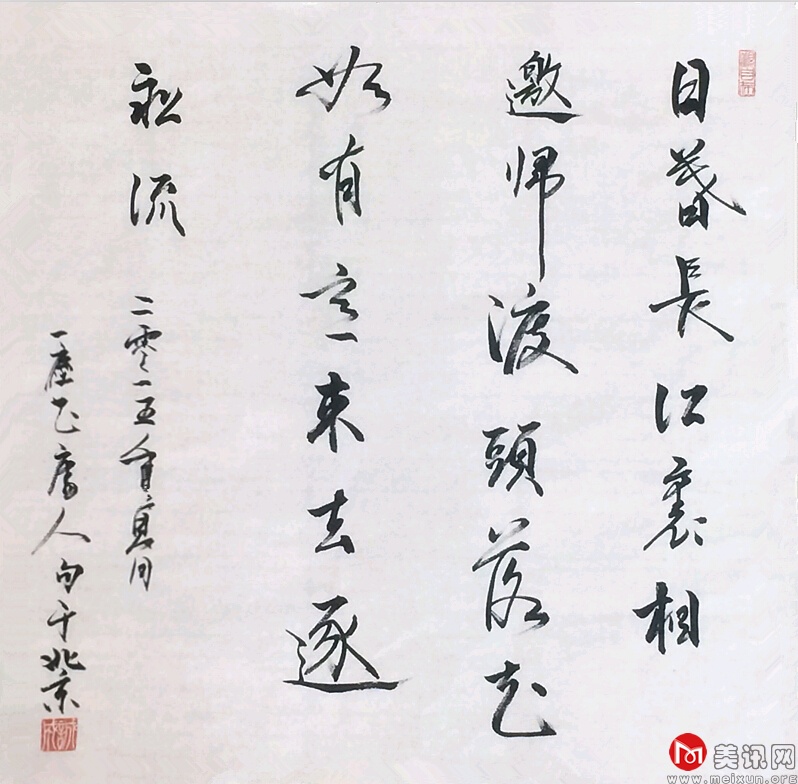 日暮長江裏相
邀帰渡頭落花
如有意来去逐
船流
二零一五年夏月
一塵人句于北京
美讯网
www.meixun.org